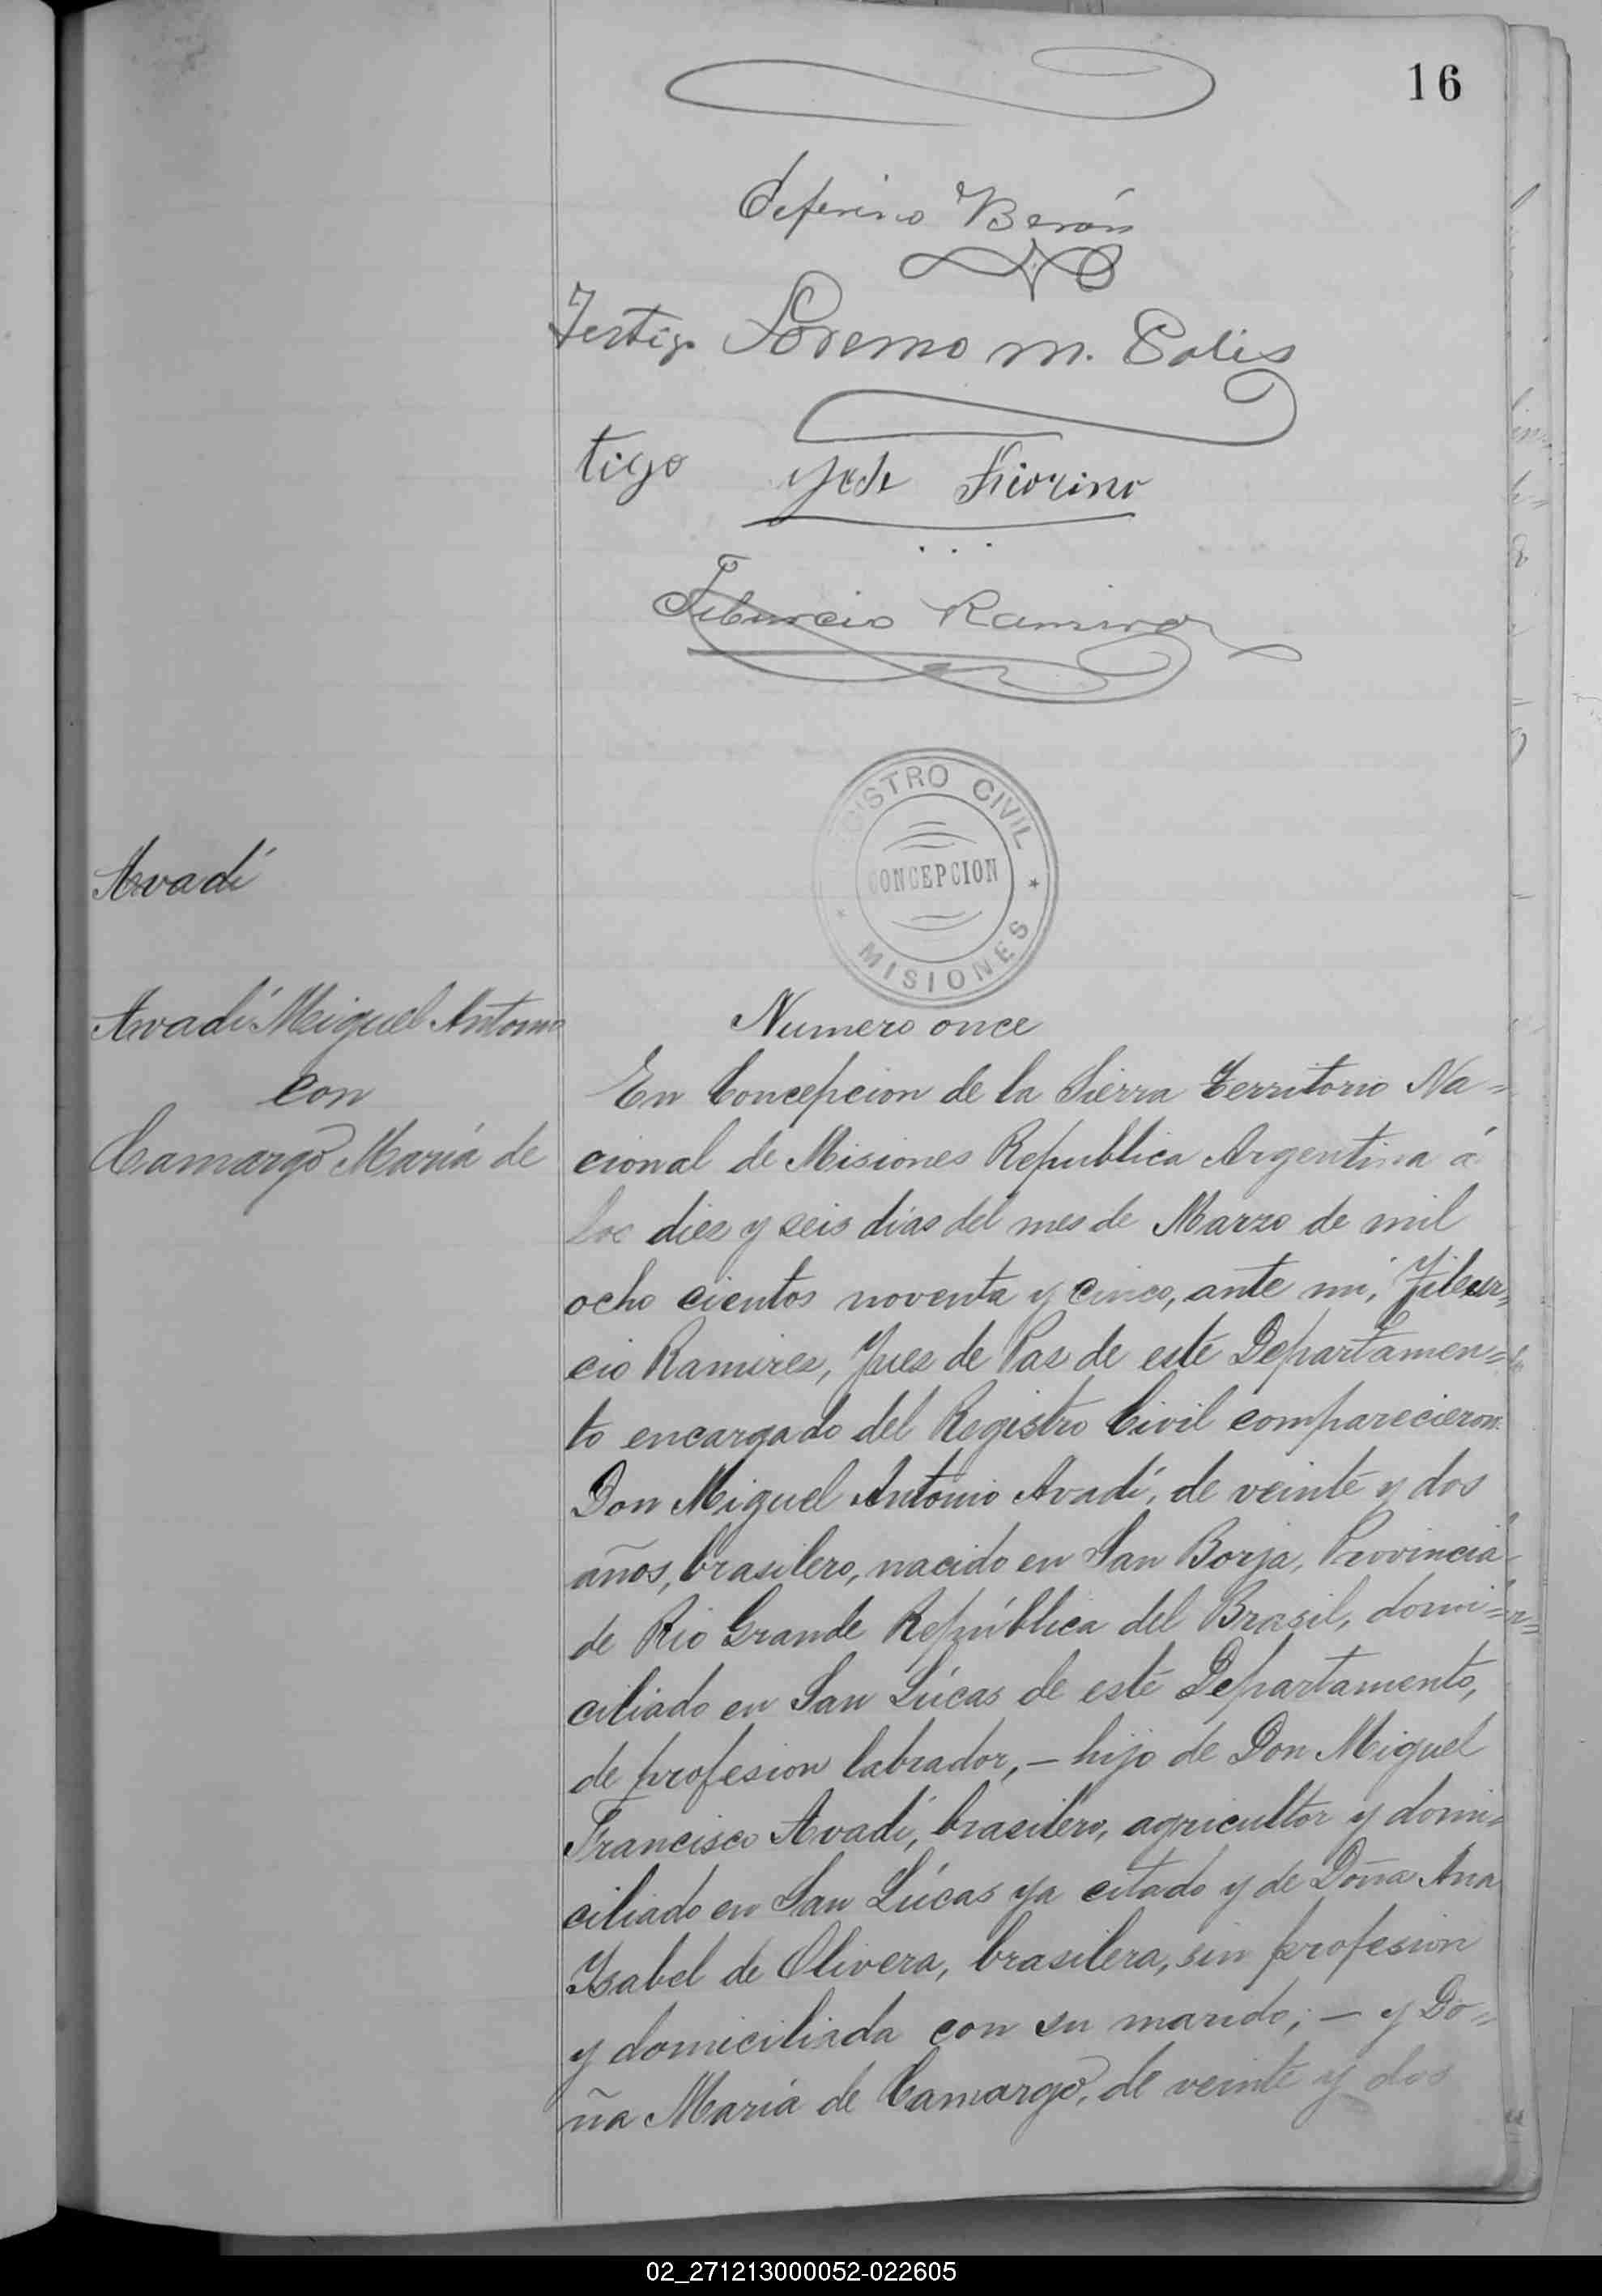 16
Ceferino Verón
Testigo Loremo M. Solis
tigo Fiorino
Tiburcio Ramirez
REGISTRO CIVIL
CONCEPCION
MISIONES
Avadí
Avadí Miguel Antonio
con
Camargo María de
Numero once
En Concepcion de la Sierra Territorio Na=
cional de Misiones Republica Argentina á
los diez y seis dias del mes de Marzo de mil
ocho cientos noventa y cinco, ante mi, Tibur=
cio Ramires, Juez de Paz de este Departamen=
to encargado del Registro Civil comparecieron:
Don Miguel Antonio Avadí, de veinte y dos
años, brasilero, nacido en San Borja, Provincia
de Rio Grande República del Brasil, domi=
ciliado en San Lúcas de este Departamento,
de profesion labrador, — hijo de Don Miguel
Francisco Avadí, brasilero, agricultor y domi=
ciliado en San Lúcas ya citado y de Doña Ana
Ysabel de Olivera, brasilera, sin profesion
y domiciliada con su marido; — y Do=
ña María de Camargo, de veinte y dos
02_271213000052-022605